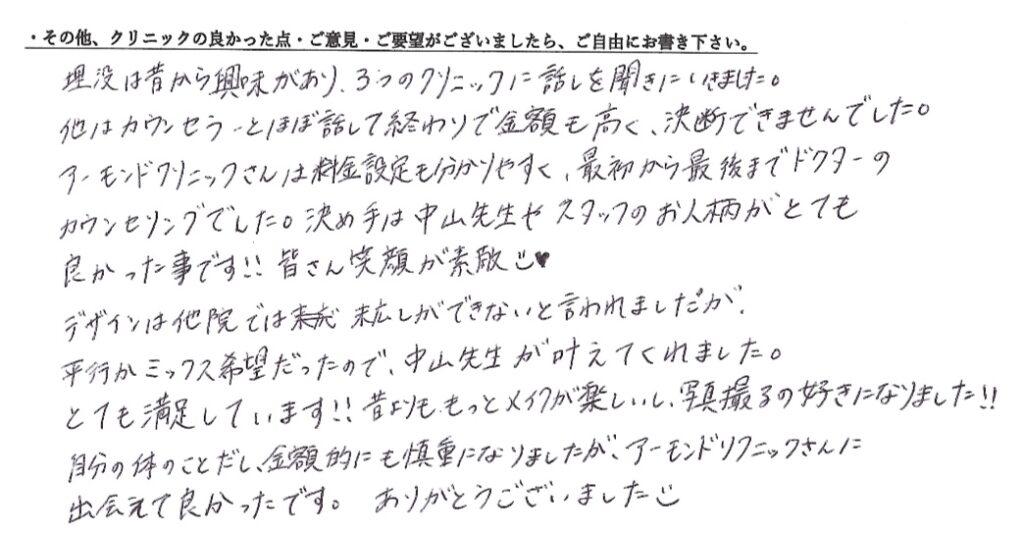 ・その他、クリニックの良かった点・ご意見・ご要望がございましたら、ご自由にお書き下さい。
埋没は昔から興味があり、3つのクリニックに話しを聞きにいきました。
他はカウンセラーとほぼ話して終わりで金額も高く、決断できませんでした。
アーモンドクリニックさんは料金設定も分かりやすく、最初から最後までドクターの
カウンセリングでした。決め手は中山先生やスタッフのお人柄がとても
良かった事です!! 皆さん笑顔が素敵☺♥
デザインは他院では 末広しができないと言われましたが、
平行かミックス希望だったので、中山先生が叶えてくれました。
とても満足しています!! 昔よりも、もっとメイクが楽しいし、写真撮るの好きになりました!!
自分の体のことだし、金額的にも慎重になりましたが、アーモンドクリニックさんに
出会えて良かったです。 ありがとうございました☺